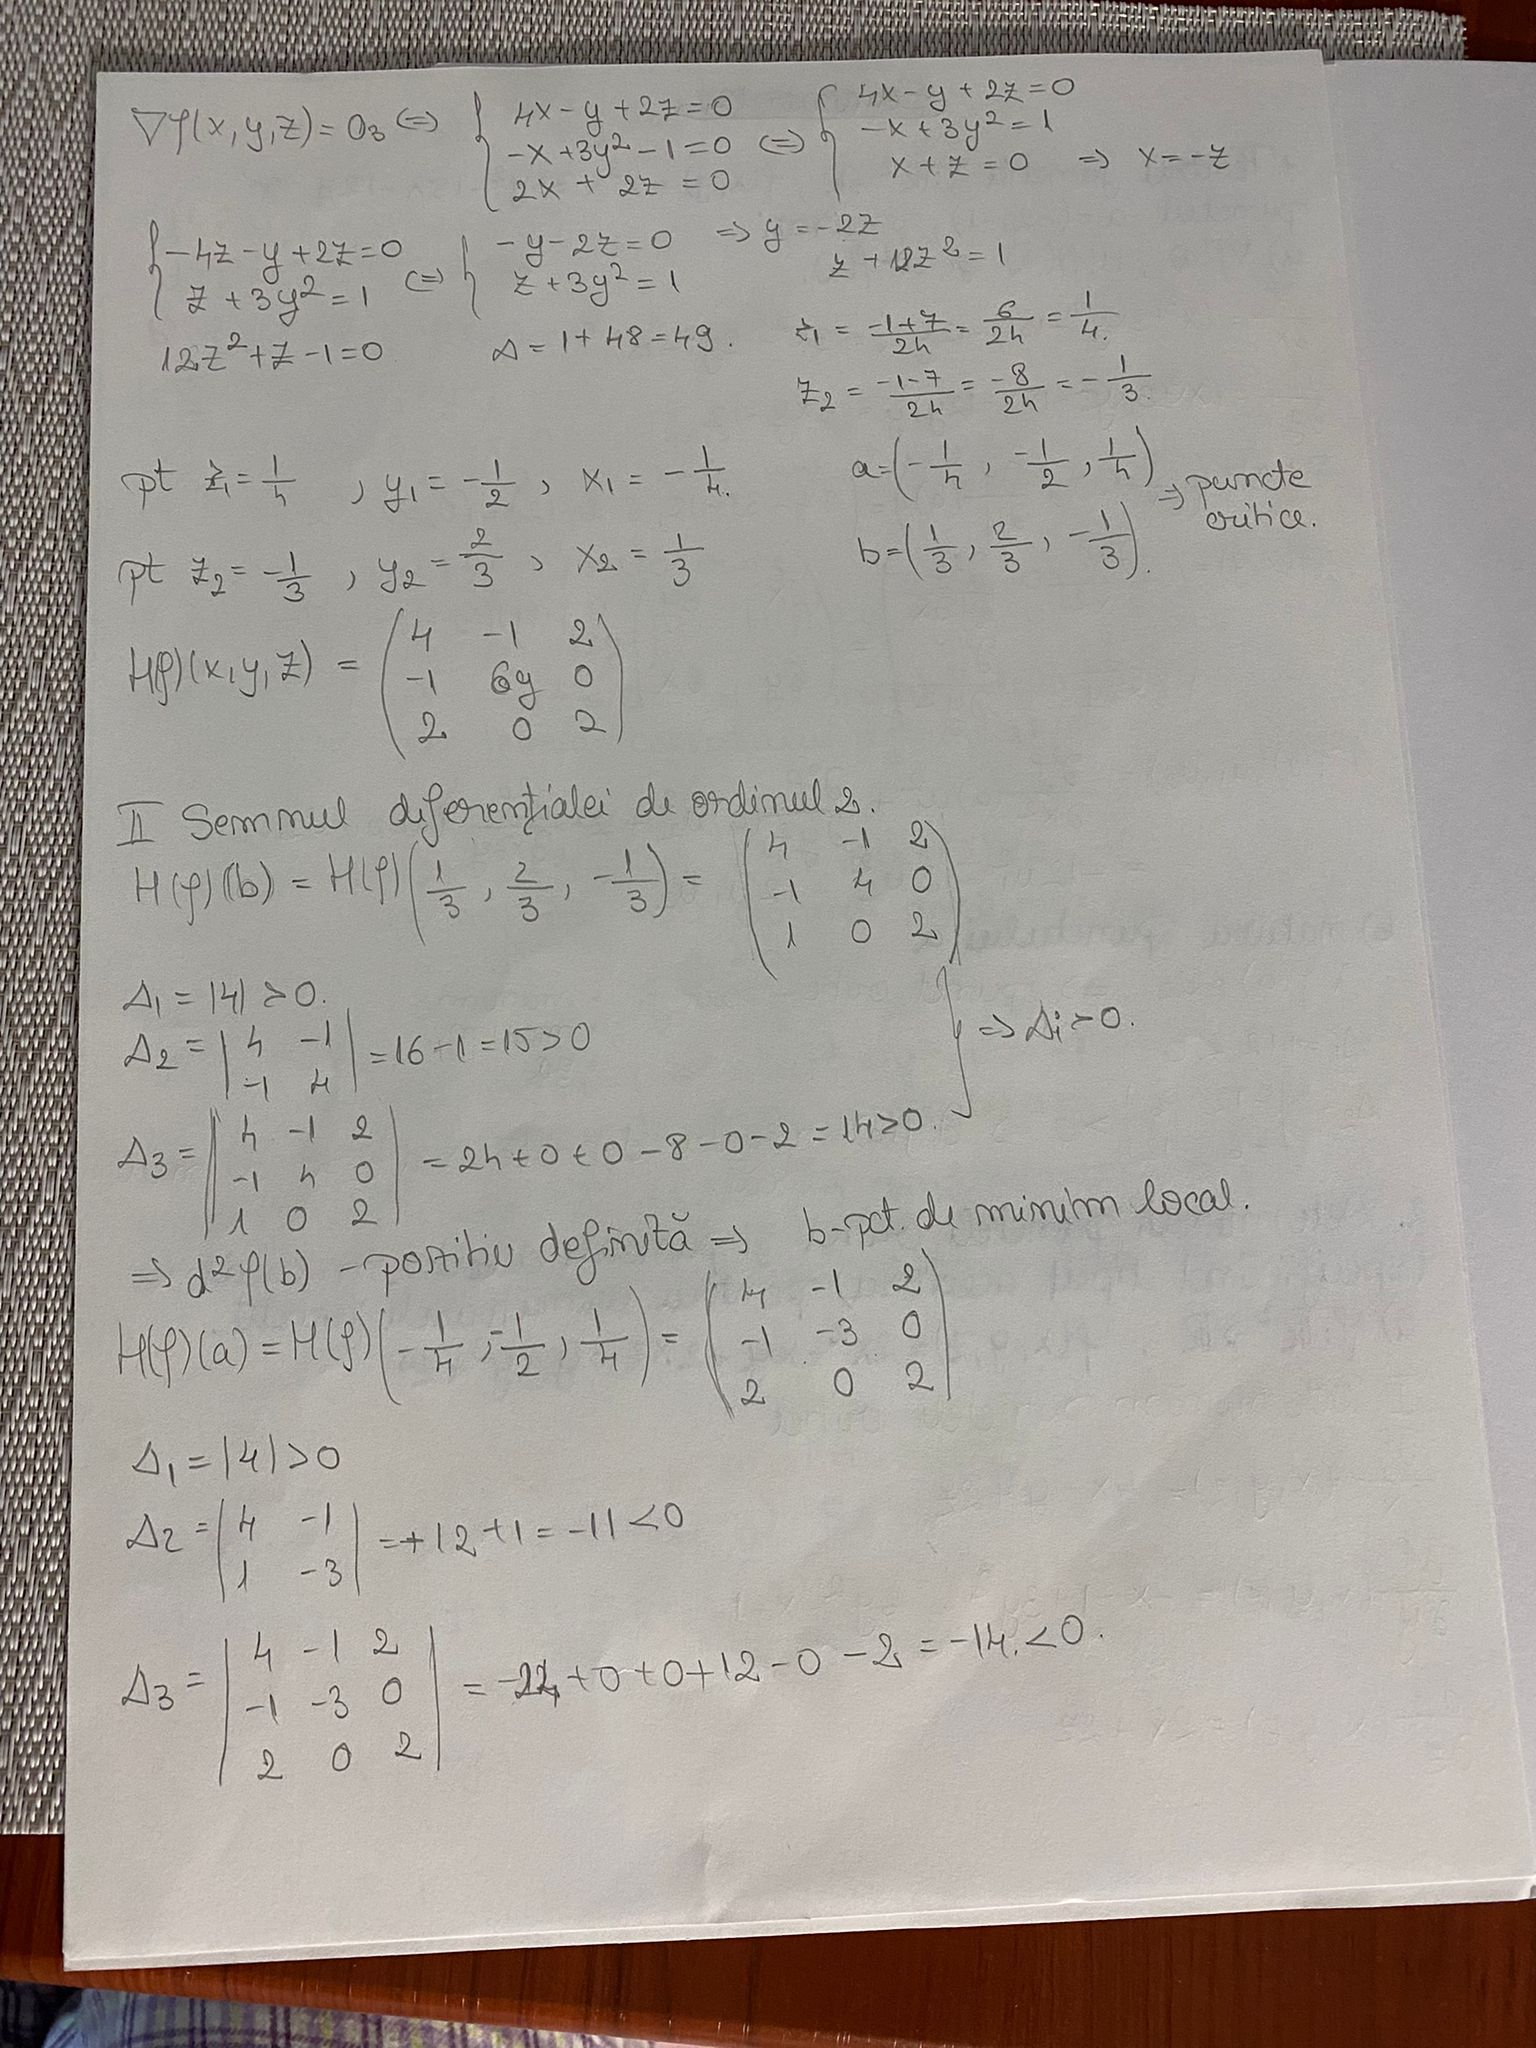 ∇f(x,y,z)=0₃ ⇔ { 4x-y+2z=0 ; -x+3y²-1=0 ; 2x+2z=0 ⇔ { 4x-y+2z=0 ; -x+3y²=1 ; x+z=0 ⇒ x=-z
{ -4z-y+2z=0 ; z+3y²=1 ⇔ { -y-2z=0 ; z+3y²=1 ⇒ y=-2z
z+12z²=1
12z²+z-1=0 Δ=1+48=49. z₁ = (-1+7)/24 = 6/24 = 1/4.
z₂ = (-1-7)/24 = -8/24 = -1/3.
pt z₁=1/4, y₁=-1/2, x₁=-1/4. a=(-1/4, -1/2, 1/4)
pt z₂=-1/3, y₂=2/3, x₂=1/3 b=(1/3, 2/3, -1/3). ⇒ puncte critice.
H(f)(x,y,z) = ( 4 -1 2 ; -1 6y 0 ; 2 0 2 )
II Semnul diferențialei de ordinul 2.
H(f)(b) = H(f)(1/3, 2/3, -1/3) = ( 4 -1 2 ; -1 4 0 ; 1 0 2 )
Δ₁ = |4| > 0.
Δ₂ = | 4 -1 ; -1 4 | = 16-1 = 15 > 0
Δ₃ = | 4 -1 2 ; -1 4 0 ; 1 0 2 | = 24+0+0-8-0-2 = 14>0. } ⇒ Δi>0.
⇒ d²f(b) - pozitiv definită ⇒ b-pct. de minim local.
H(f)(a) = H(f)(-1/4, -1/2, 1/4) = ( 4 -1 2 ; -1 -3 0 ; 2 0 2 )
Δ₁ = |4| > 0
Δ₂ = | 4 -1 ; 1 -3 | = +12+1 = -11 < 0
Δ₃ = | 4 -1 2 ; -1 -3 0 ; 2 0 2 | = -24+0+0+12-0-2 = -14. < 0.